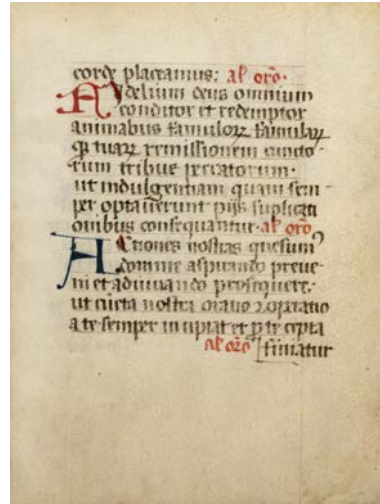 corde placeamus: al' orō·
Fidelium deus omnium
conditor et redemptor
animabus famuloꝝ famulaꝝ
qꝫ tuaꝝ remissionem cuncto-
rum tribue peccatorum·
ut indulgentiam quam sem-
per optauerunt pijs suplicati
onibus consequantur· al' orō
Actiones nostras quesumꝰ
domine aspirando preue-
ni et adiuuando prosequere·
ut cūcta nostra oratio ⁊ operatio
a te semper incipiat et ꝑ te cepta
al' orō finiatur